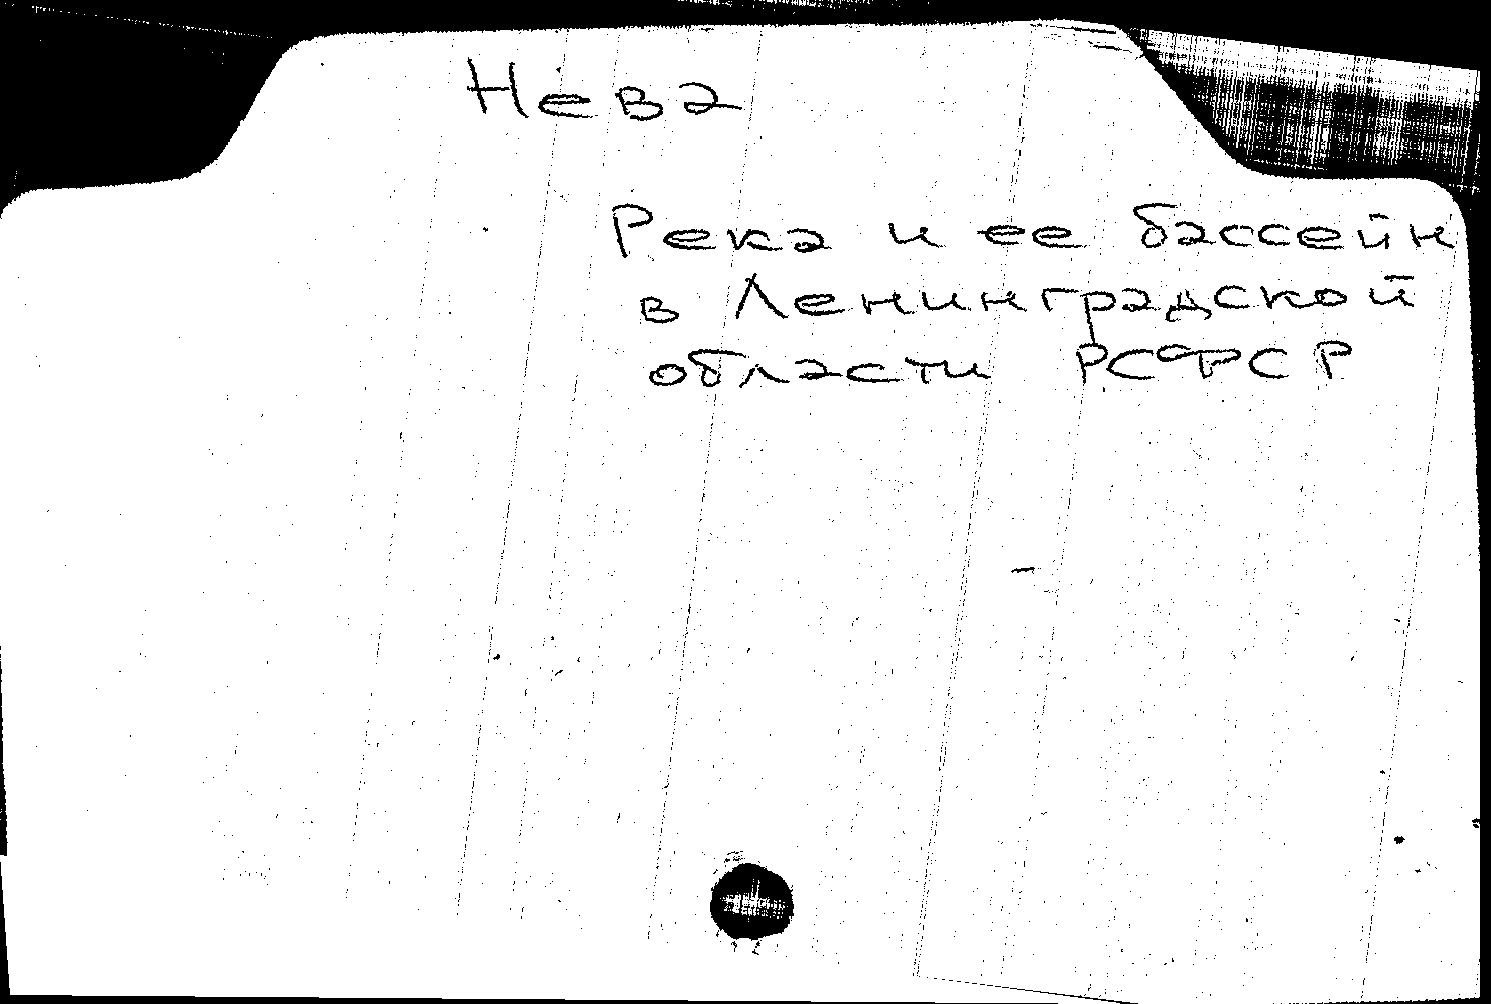 Нева
Река и ее бассейн
в Ленинградской
области РСФСР